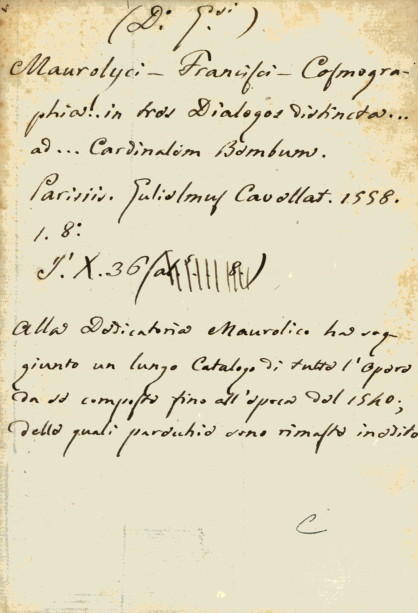 (D. G.si)
Maurolyci - Francisci - Cosmogra-
phia! in tres Dialogos distincta...
ad... Cardinalem Bembum.
Parisiis. Gulielmus Cavellat. 1558.
1. 8.
I. X. 36 (a 8)
Alla Dedicatoria Maurolico ha sog-
giunto un lungo Catalogo di tutte l'Opere
da se composte fino all'epoca del 1540;
delle quali parecchie sono rimaste inedite
C